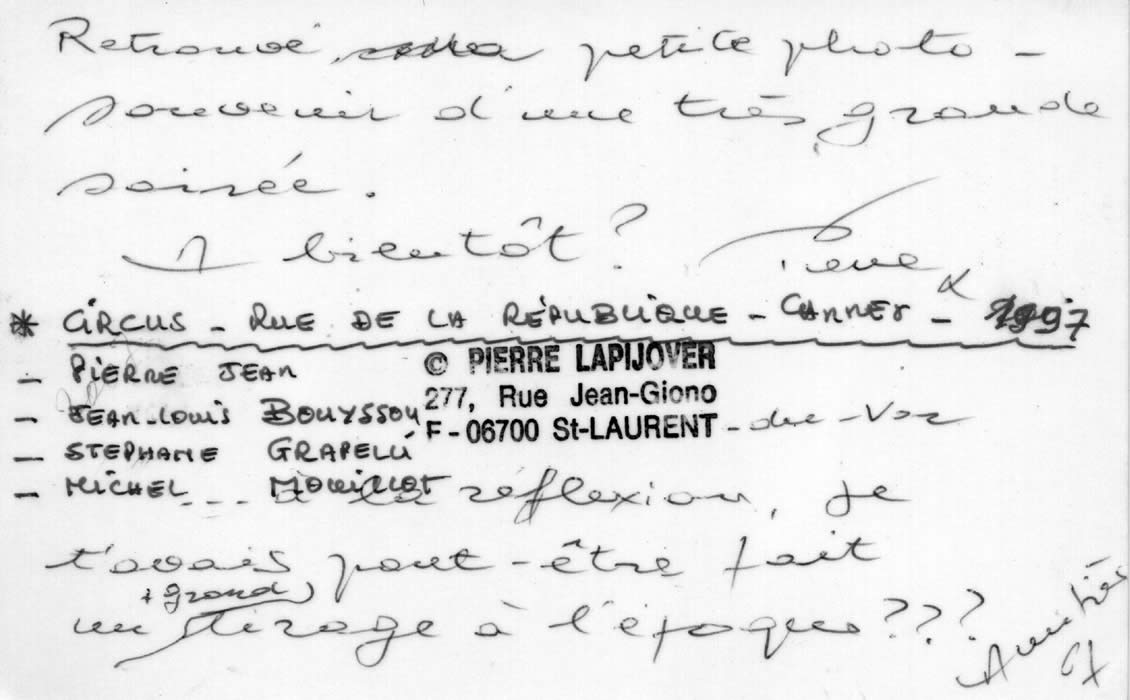 Retrouvé cette petite photo -
souvenir d'une très grande
soirée.
A bientôt ?
* CIRCUS - RUE DE LA RÉPUBLIQUE - CANNES - 1997
- PIERRE JEAN
- JEAN-LOUIS BOUYSSOU
- STEPHANE GRAPELLI
- MICHEL MOUILLOT
© PIERRE LAPIJOVER
277, Rue Jean-Giono
F - 06700 St-LAURENT - du-Var
... à la réflexion, je
t'avais peut-être fait
+ grand
un tirage à l'époque ???
Amitiés